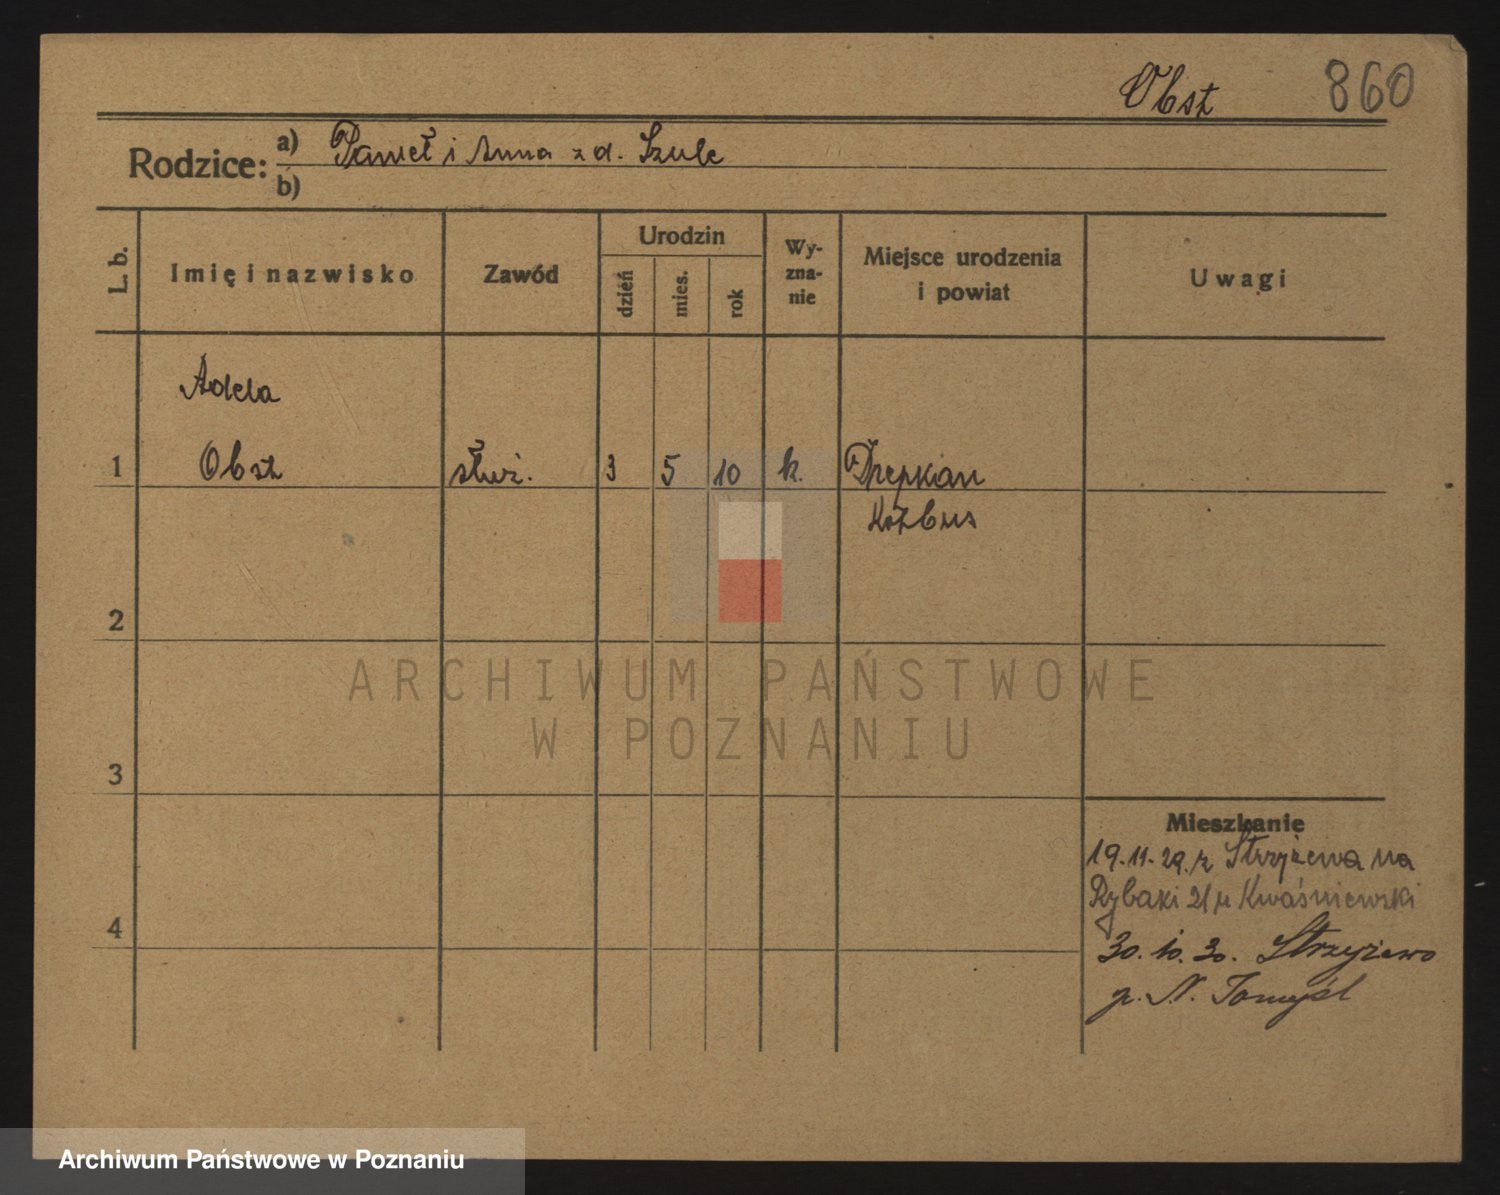 Obst 860
Rodzice: a) Paweł i Anna z d. Szulc
b)
L. b. Imię i nazwisko Zawód Urodzin dzień mies. rok Wy-zna-nie Miejsce urodzenia i powiat Uwagi
Adela
1 Obst służ. 3 5 10 k. Drepkau
Kotbus
2
3
4
Mieszkanie
19.11.29. z Strzyżewa na
Rybaki 21 u Kwaśniewski
30. 10. 30. Strzyżewo
p. N. Tomyśl
ARCHIWUM PAŃSTWOWE
W POZNANIU
Archiwum Państwowe w Poznaniu